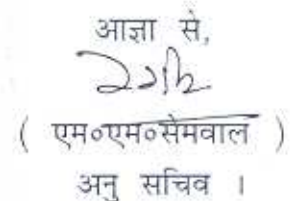 आज्ञा से,
( एम०एम०सेमवाल )
अनु सचिव ।